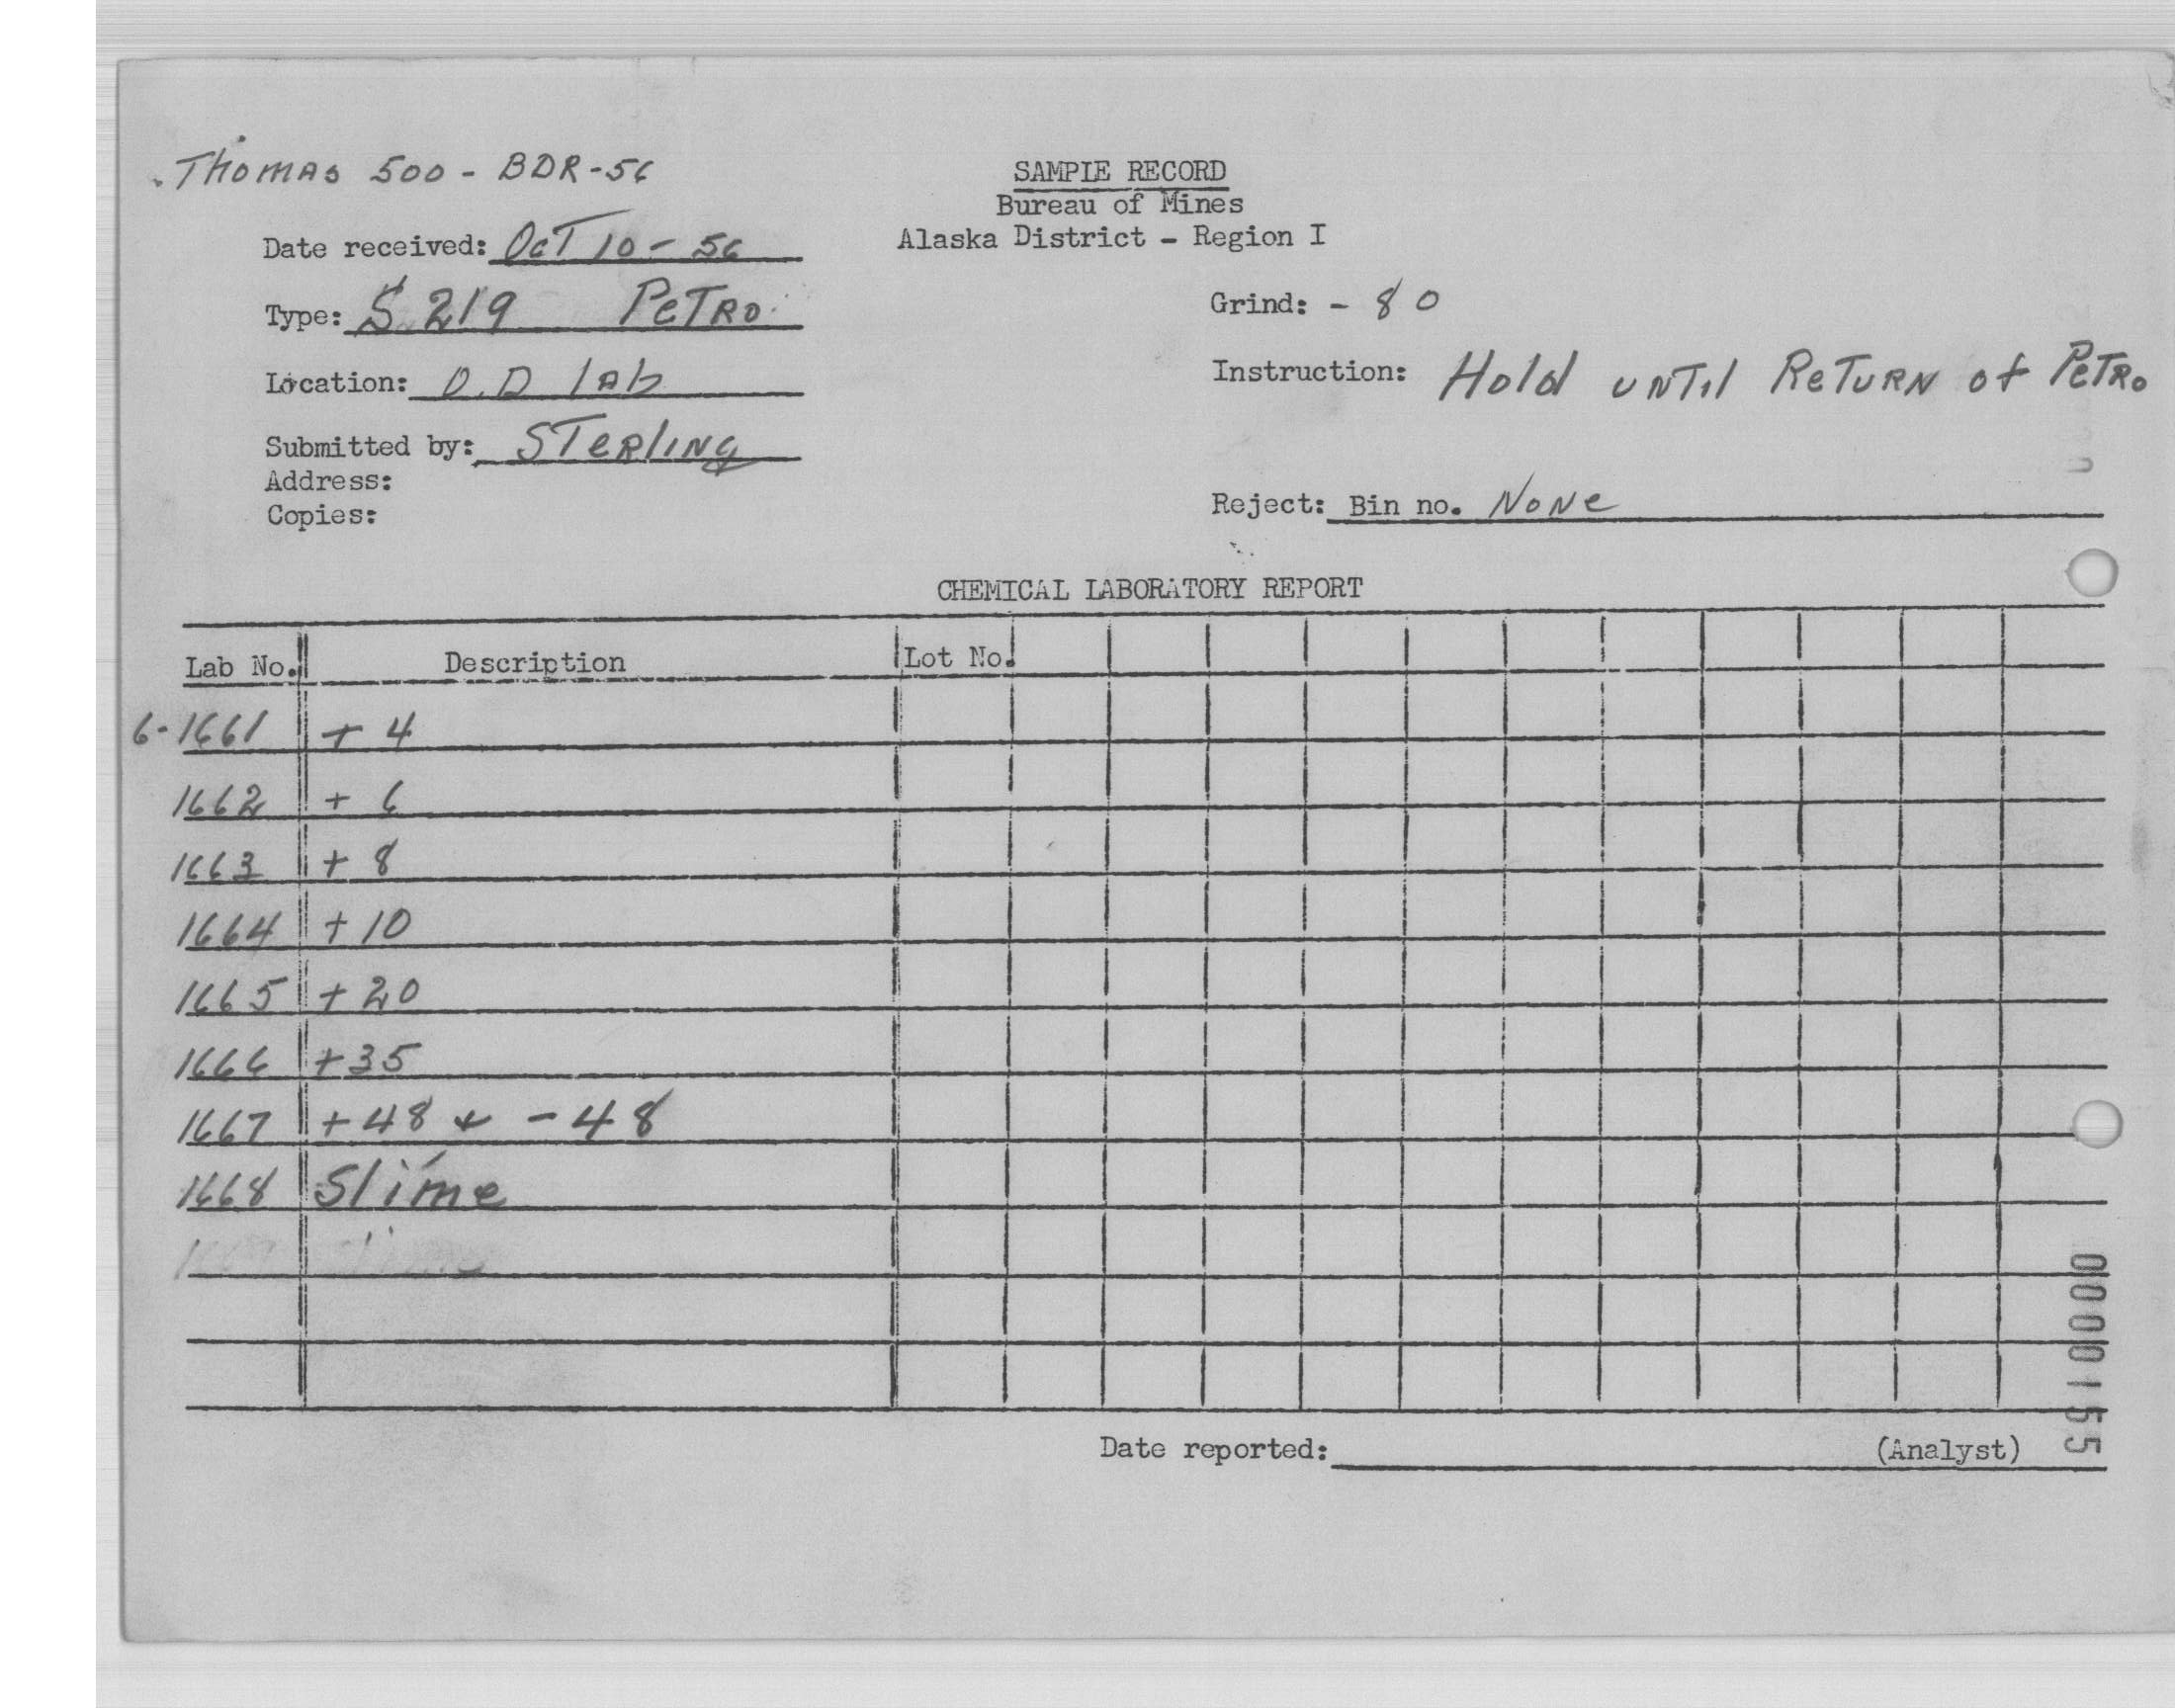 Thomas 500 - BDR-56
SAMPLE RECORD
Bureau of Mines
Alaska District - Region I
Date received: Oct 10 - 56
Type: S 219 Petro.
Grind: - 80
Location: O.D lab
Instruction: Hold until Return of Petro
Submitted by: Sterling
Address:
Copies:
Reject: Bin no. None
CHEMICAL LABORATORY REPORT
Lab No. Description Lot No.
6-1661 + 4
1662 + 6
1663 + 8
1664 + 10
1665 + 20
1666 + 35
1667 + 48 + - 48
1668 Slime
Date reported: (Analyst)
0000155